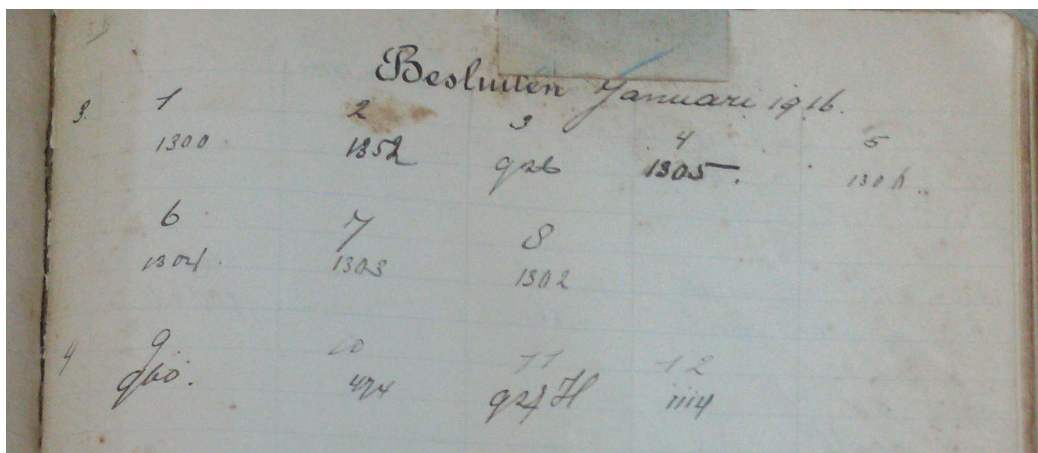 Besluiten Januari 1916.
3. 1 2 3 4 5
1300. 1352 926 1305. 1306.
6 7 8
1304. 1303 1302
4 9 10 11 12
960. 494 H 1114